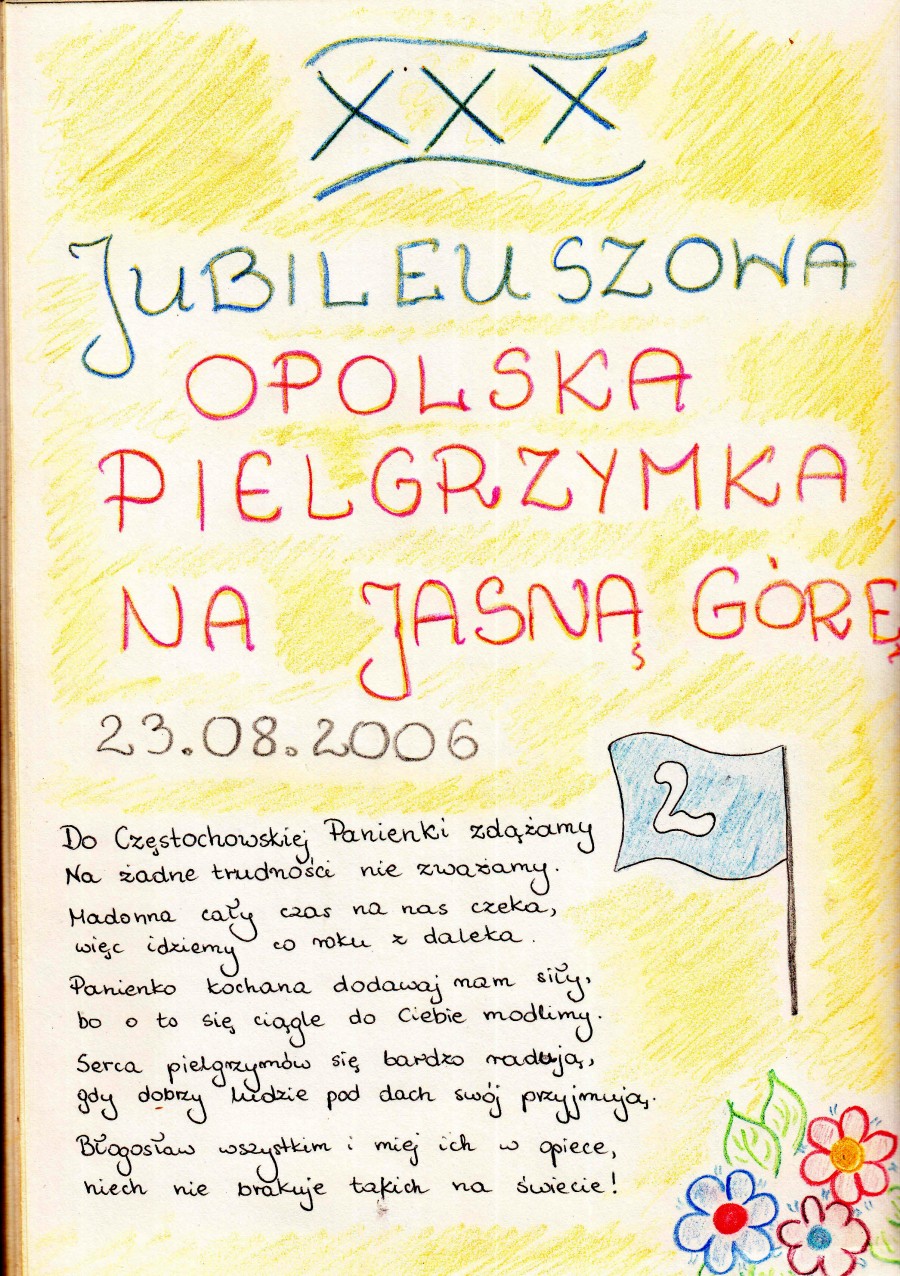 XXX
JUBILEUSZOWA
OPOLSKA
PIELGRZYMKA
NA JASNĄ GÓRĘ
23.08.2006
2
Do Częstochowskiej Panienki zdążamy
Na żadne trudności nie zważamy.
Madonna cały czas na nas czeka,
więc idziemy co roku z daleka.
Panienko kochana dodawaj nam siły,
bo o to się ciągle do Ciebie modlimy.
Serca pielgrzymów się bardzo radują,
gdy dobrzy ludzie pod dach swój przyjmują.
Błogosław wszystkim i miej ich w opiece,
niech nie brakuje takich na świecie!